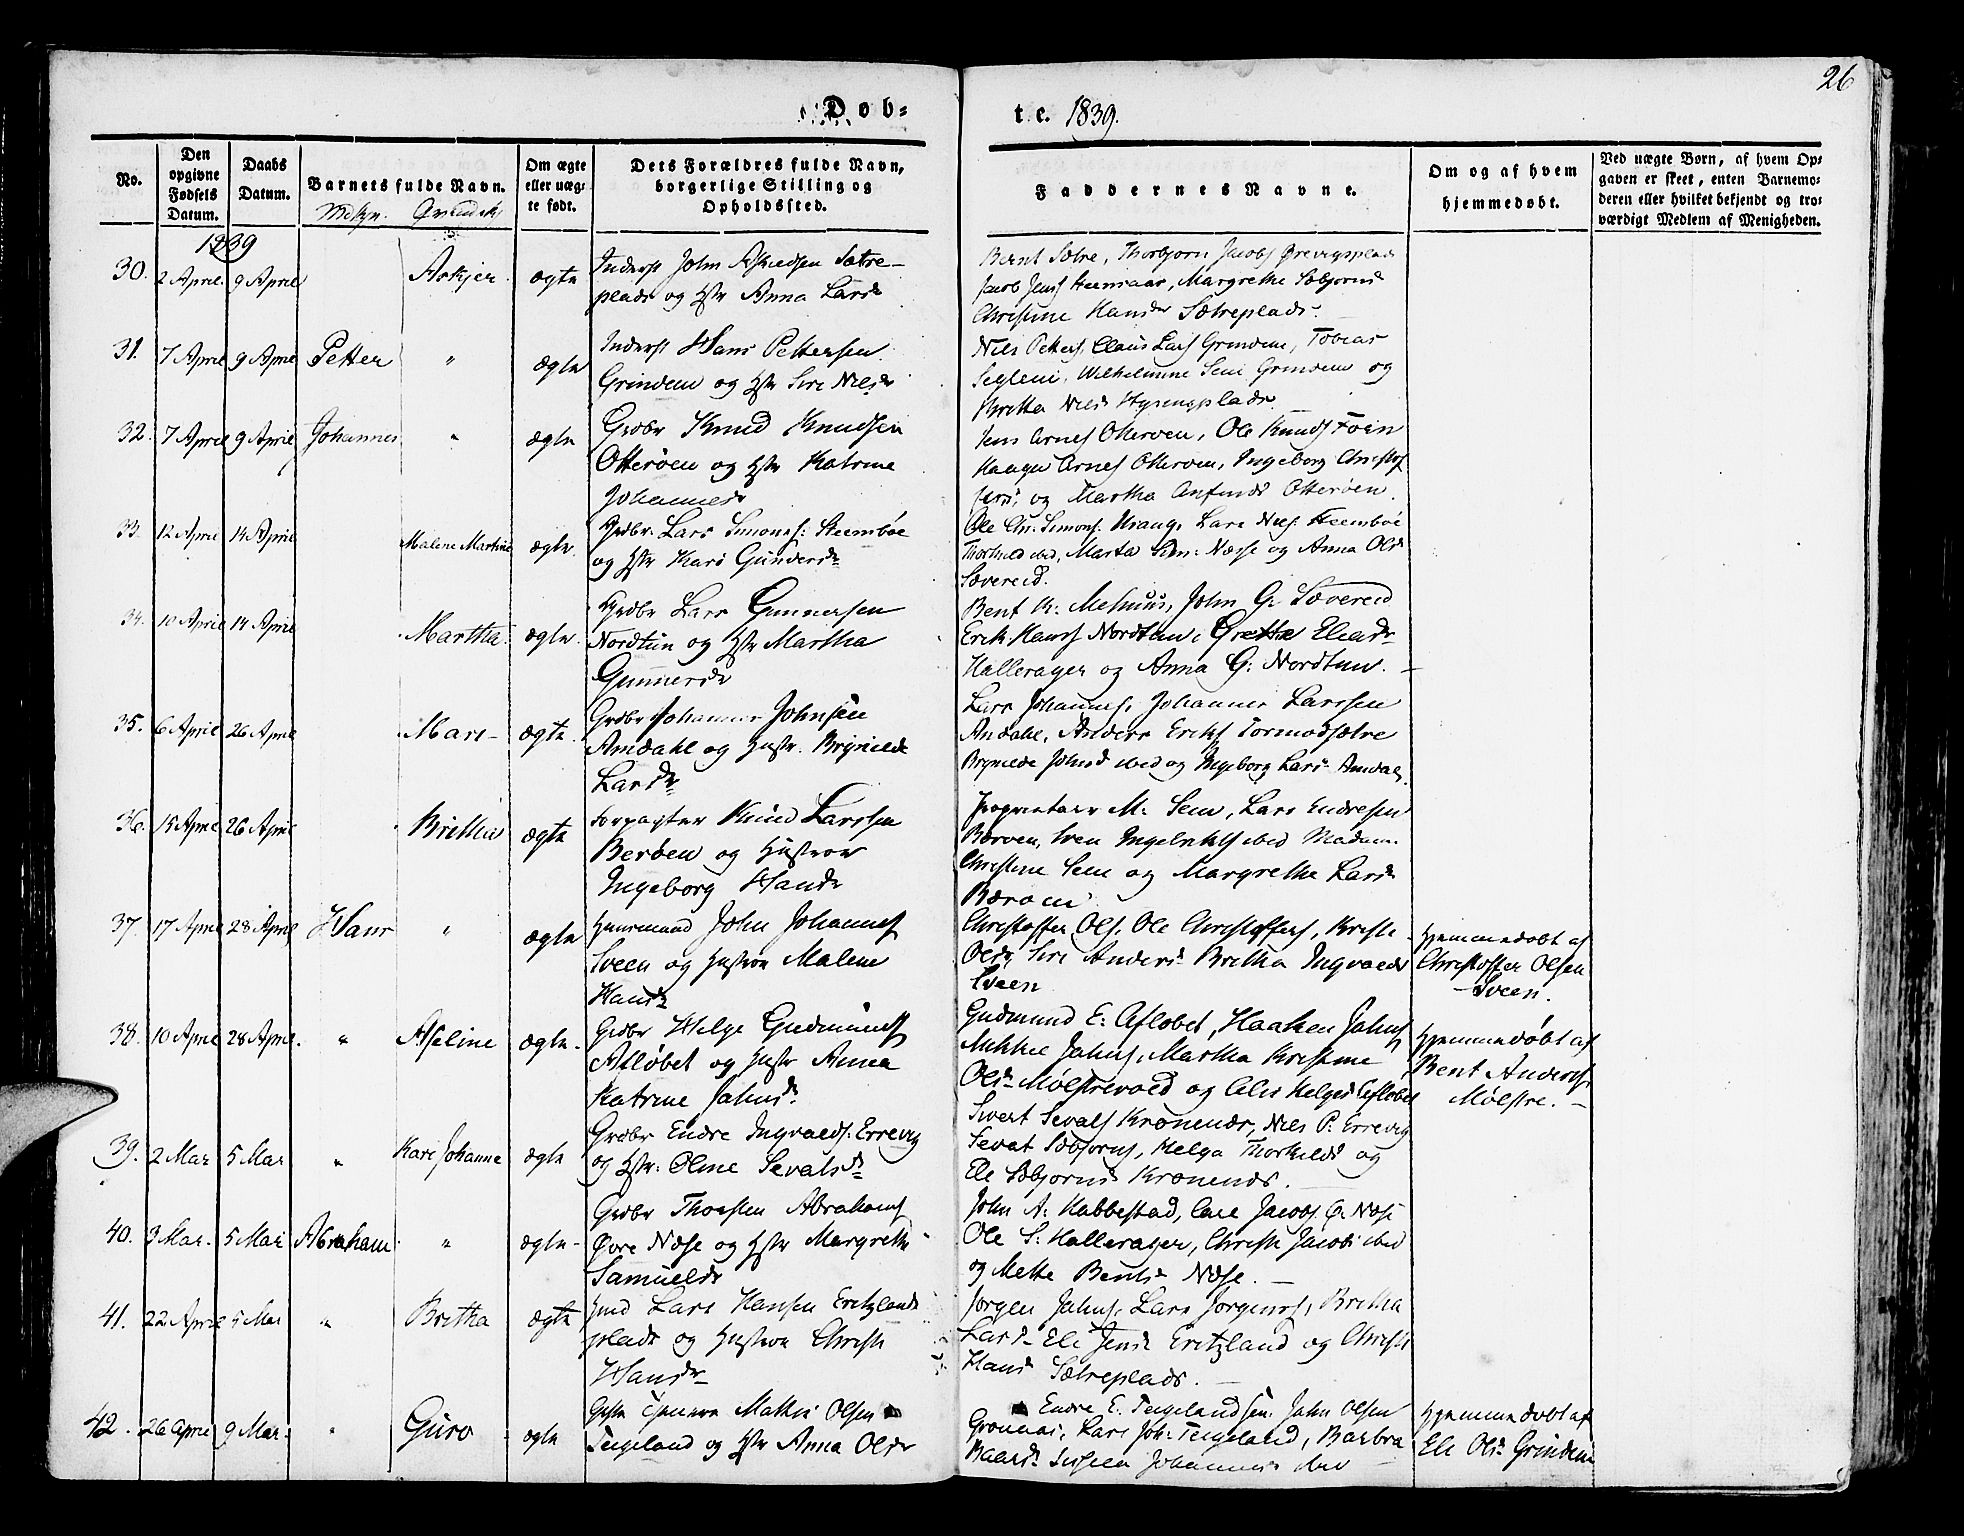 26
Dob=
te. 1839.
No.
Den opgivne Fødsels Datum.
Daabs Datum.
Barnets fulde Navn.
Om ægte eller uæg= te født.
Dets Forældres fulde Navn, borgerlige Stilling og Opholdssted.
Faddernes Navne.
Om og af hvem hjemmedøbt.
Ved uægte Børn, af hvem Op= gaven er skeet, enten Barnemo= deren eller hvilket bekjendt og tro= værdigt Medlem af Menigheden.
1839
30. 2 April 9 April Askjer ægte
Inderst John Askedsen Sætre-
plads og Hstr Anna Larsdr
Bernt Sætre, Thorbjorn Jacobs
Jacob Jens, Margrethe Sæbjorns
Christine Hansdr Sætreplads.
31. 7 April 9 April Petter " ægte
Inderst Hans Pettersen
Grindem og Hstr Siri Nilsdr
Nils Petters, Claus Lars Grindem, Tobias
Wilhelmine Sem Grindem og
Brittha Nilsd
32. 7 April 9 April Johannes " ægte
Grdbr Knud Knudsen
Otterøen og Hstr Katrine
Johannesdr
Jens Arnes Otterøen, Ole Knuds Foien
Haagen Arnes Otterøen, Ingeborg Christof
fers, og Martha Anfinds Otterøen.
33. 12 April 14 April Malene Martine ægte
Grdbr. Lars Simons: Steensbøe
og Hstr Kari Gundersdr
Ole Chr. Simons. Vrang, Lars Nils: Steensbøe
Thorkild ibid, Marta Sim: Næsse og Anna Olsdr
Sævereid.
34. 10 April 14 April Martha ægte
Grdbr Lars Gunnersen
Nordtun og Hstr Martha
Gunnersdr
Bent K. Mehuus, John G: Sævereid
Erik Hans Nordtun, Grethe Eliasdr
Hallerager og Anna G: Nordtun.
35. 6 April 26 April Mari ægte
Grdbr Johannes Johnsen
Amdahl og Hustr. Brynilde
Larsdr
Lars Johannes, Johannes Larssen
Amdahl, Anders Eriks Tormodsætre
Brynilde Johnsd ibid og Ingeborg Lars Amdal
36. 15 April 26 April Brittha ægte
Forpagter Knud Larssen
Berøen og Hustroe
Ingeborg Hansdr
Proprietair M. Sem, Lars Endresen
Berøen, Iver Ingebrikts ibid Madam
Christine Sem og Margrethe Larsdr
Bærøen
37. 17 April 28 April Hans " ægte
Huusmand John Johannes
Sveen og Hustroe Malene
Hansdr
Christoffer Ols. Ole Christoffers, Kristi
Olsdr, Siri Anders Britha Ingvalds
Sveen
Hjemmedøbt af
Christoffer Olsen
Sveen.
38. 10 April 28 April " Aseline ægte
Grdbr Helge Gudmunds
Afløbet og Hustr Anna
Katrine Jahnsdr
Gudmund E: Afløbet, Haaken Jahns,
Mikkel Jahns, Martha Kristine
Olsdr Mølstrevold og Alis Helges Afløbet
Hjemmedøbt af
Bent Anders.
Mølstre.
39. 2 Mai 5 Mai " Kari Johanne ægte
Grdbr Endre Ingvalds: Errevig
og Hstr: Oline Sevalsdr
Sivert Sevals Kronenæs, Nils P. Errevig
Sevat Sæbjorns, Helga Thorkilds og
Eli Sæbjorns Kronenæs.
40. 3 Mai 5 Mai Abraham " ægte
Grdbr Thorsten Abrahams
Øvre Næse og Hstr Margrethe
Samuelsdr
John A: Habbestad, Lars Jacobs Ø. Næse
Ole S: Hallerager, Christi Jacobs ibid
og Mette Bents Næse.
41. 22 April 5 Mai " Britha ægte
Hmd Lars Hansen Eritzlands
plads og Hustroe Christi
Hansdr
Jorgen Jahns, Lars Jorgens, Britha
Larsd Eli Jensd Eritzland og Christi
Hansd Sætreplads.
42. 26 April 9 Mai " Guro ægte
Mathis Olsen
Teigeland og Hstr Anna Olsdr
Endre E. Teigelandsen. Jahn Olsen
Grønaas, Lars Joh: Teigeland, Barbra
Baards Johannes ibid
Hjemmedøbt af
Eli Olsdr Grindem